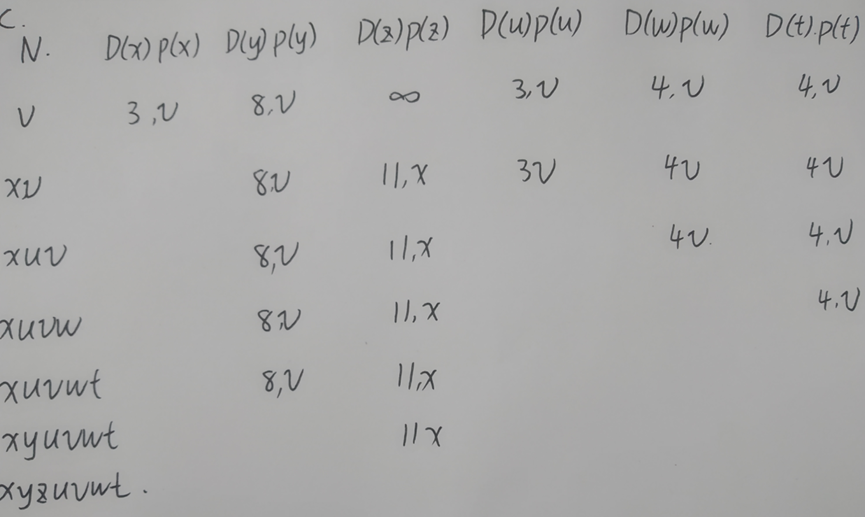 C.
N. D(x)p(x) D(y)p(y) D(z)p(z) D(u)p(u) D(w)p(w) D(t).p(t)
v 3,v 8,v ∞ 3,v 4,v 4,v
xv 8v 11,x 3v 4v 4v
xuv 8,v 11,x 4v. 4,v
xuvw 8v 11,x 4,v
xuvwt 8,v 11,x
xyuvwt 11x
xyzuvwt.